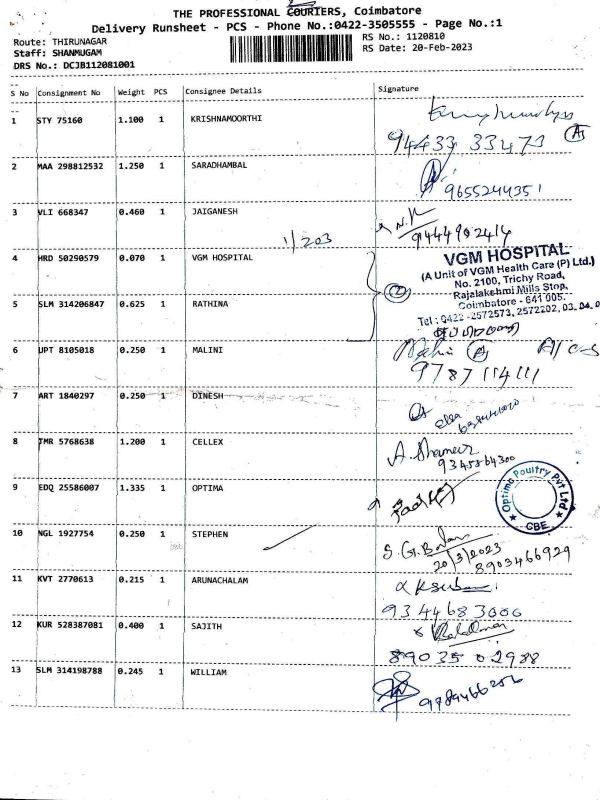 THE PROFESSIONAL COURIERS, Coimbatore
Delivery Runsheet - PCS - Phone No.:0422-3505555 - Page No.:1
Route: THIRUNAGAR
Staff: SHANMUGAM
DRS No.: DCJB112081001
RS No.: 1120810
RS Date: 20-Feb-2023
S No Consignment No Weight PCS Consignee Details Signature
1 STY 75160 1.100 1 KRISHNAMOORTHI
94433 33473
2 MAA 298812532 1.250 1 SARADHAMBAL
9655244351
3 VLI 668347 0.460 1 JAIGANESH
N.K
9444902414
1/203
4 HRD 50290579 0.070 1 VGM HOSPITAL
VGM HOSPITAL
(A Unit of VGM Health Care (P) Ltd.)
No. 2100, Trichy Road,
Rajalakshmi Mills Stop,
Coimbatore - 641 005.
Tel : 0422 -2572573, 2572202, 03, 04,
2
5 SLM 314206847 0.625 1 RATHINA
6 UPT 8105018 0.250 1 MALINI
9787 114111
7 ART 1840297 0.250 1 DINESH
8 TMR 5768638 1.200 1 CELLEX
9 EDQ 25586007 1.335 1 OPTIMA
Optima Poultry Pvt Ltd
CBE
10 NGL 1927754 0.250 1 STEPHEN
8903466929
11 KVT 2770613 0.215 1 ARUNACHALAM
9344683006
12 KUR 528387081 0.400 1 SAJITH
89035 02988
13 SLM 314198788 0.245 1 WILLIAM
9789466256